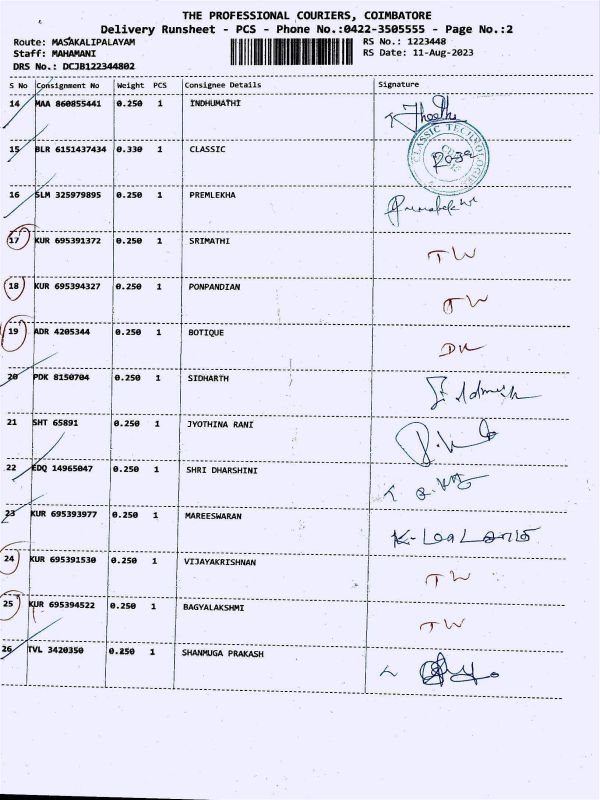 THE PROFESSIONAL COURIERS, COIMBATORE
Delivery Runsheet - PCS - Phone No.:0422-3505555 - Page No.:2
Route: MASAKALIPALAYAM RS No.: 1223448
Staff: MAHAMANI RS Date: 11-Aug-2023
DRS No.: DCJB122344802
S No Consignment No Weight PCS Consignee Details Signature
14 MAA 860855441 0.250 1 INDHUMATHI
15 BLR 6151437434 0.330 1 CLASSIC CLASSIC TECHNOLOGIES
16 SLM 325979895 0.250 1 PREMLEKHA
17 KUR 695391372 0.250 1 SRIMATHI TW
18 KUR 695394327 0.250 1 PONPANDIAN TW
19 ADR 4205344 0.250 1 BOTIQUE
20 PDK 8150704 0.250 1 SIDHARTH
21 SHT 65891 0.250 1 JYOTHINA RANI
22 EDQ 14965047 0.250 1 SHRI DHARSHINI
23 KUR 695393977 0.250 1 MAREESWARAN
24 KUR 695391530 0.250 1 VIJAYAKRISHNAN TW
25 KUR 695394522 0.250 1 BAGYALAKSHMI TW
26 TVL 3420350 0.250 1 SHANMUGA PRAKASH